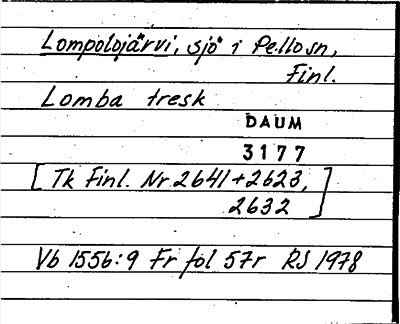 Lompolojärvi, sjö i Pellosn,
Finl.
Lomba tresk
DAUM
3177
[Tk Finl. Nr 2641+2623,
2632]
Vb 1556:9 Fr fol 57r RS 1978